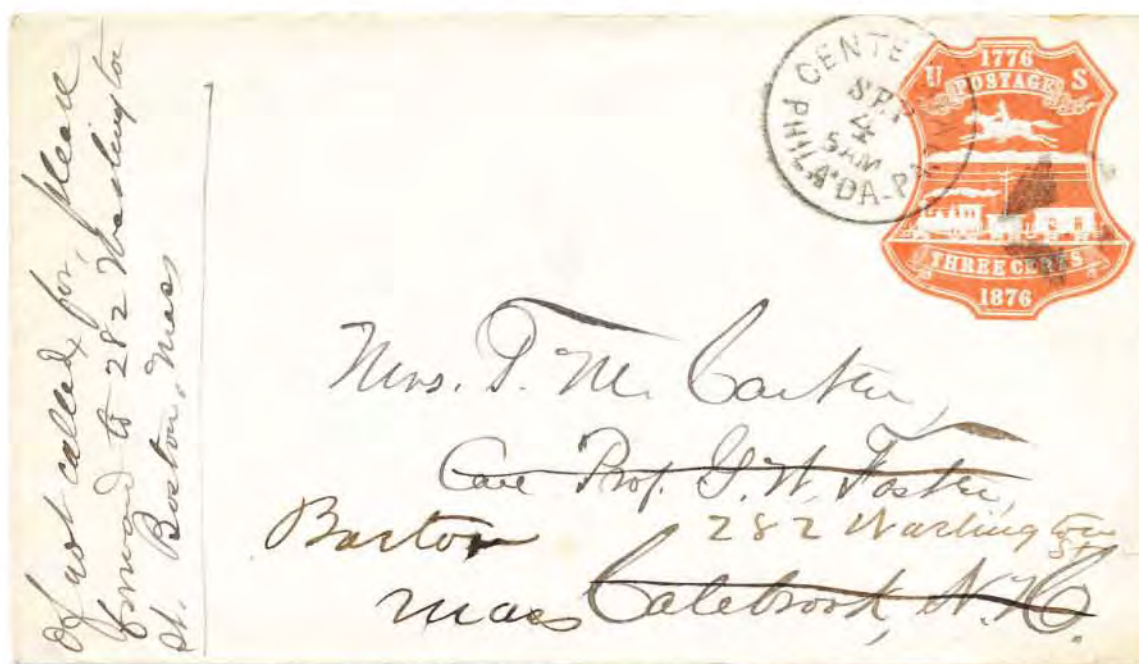 If not called for, please
forward to 282 Washington
St. Boston, Mas
CENTE
SEP
4
5 AM
PHILA'DA-PA
1776
U S
POSTAGE
THREE CENTS
1876
Mrs. T. M. Carter,
Care Prof. G. W. Foster,
Boston 282 Washington
St
Mass Colebrook, N.H.